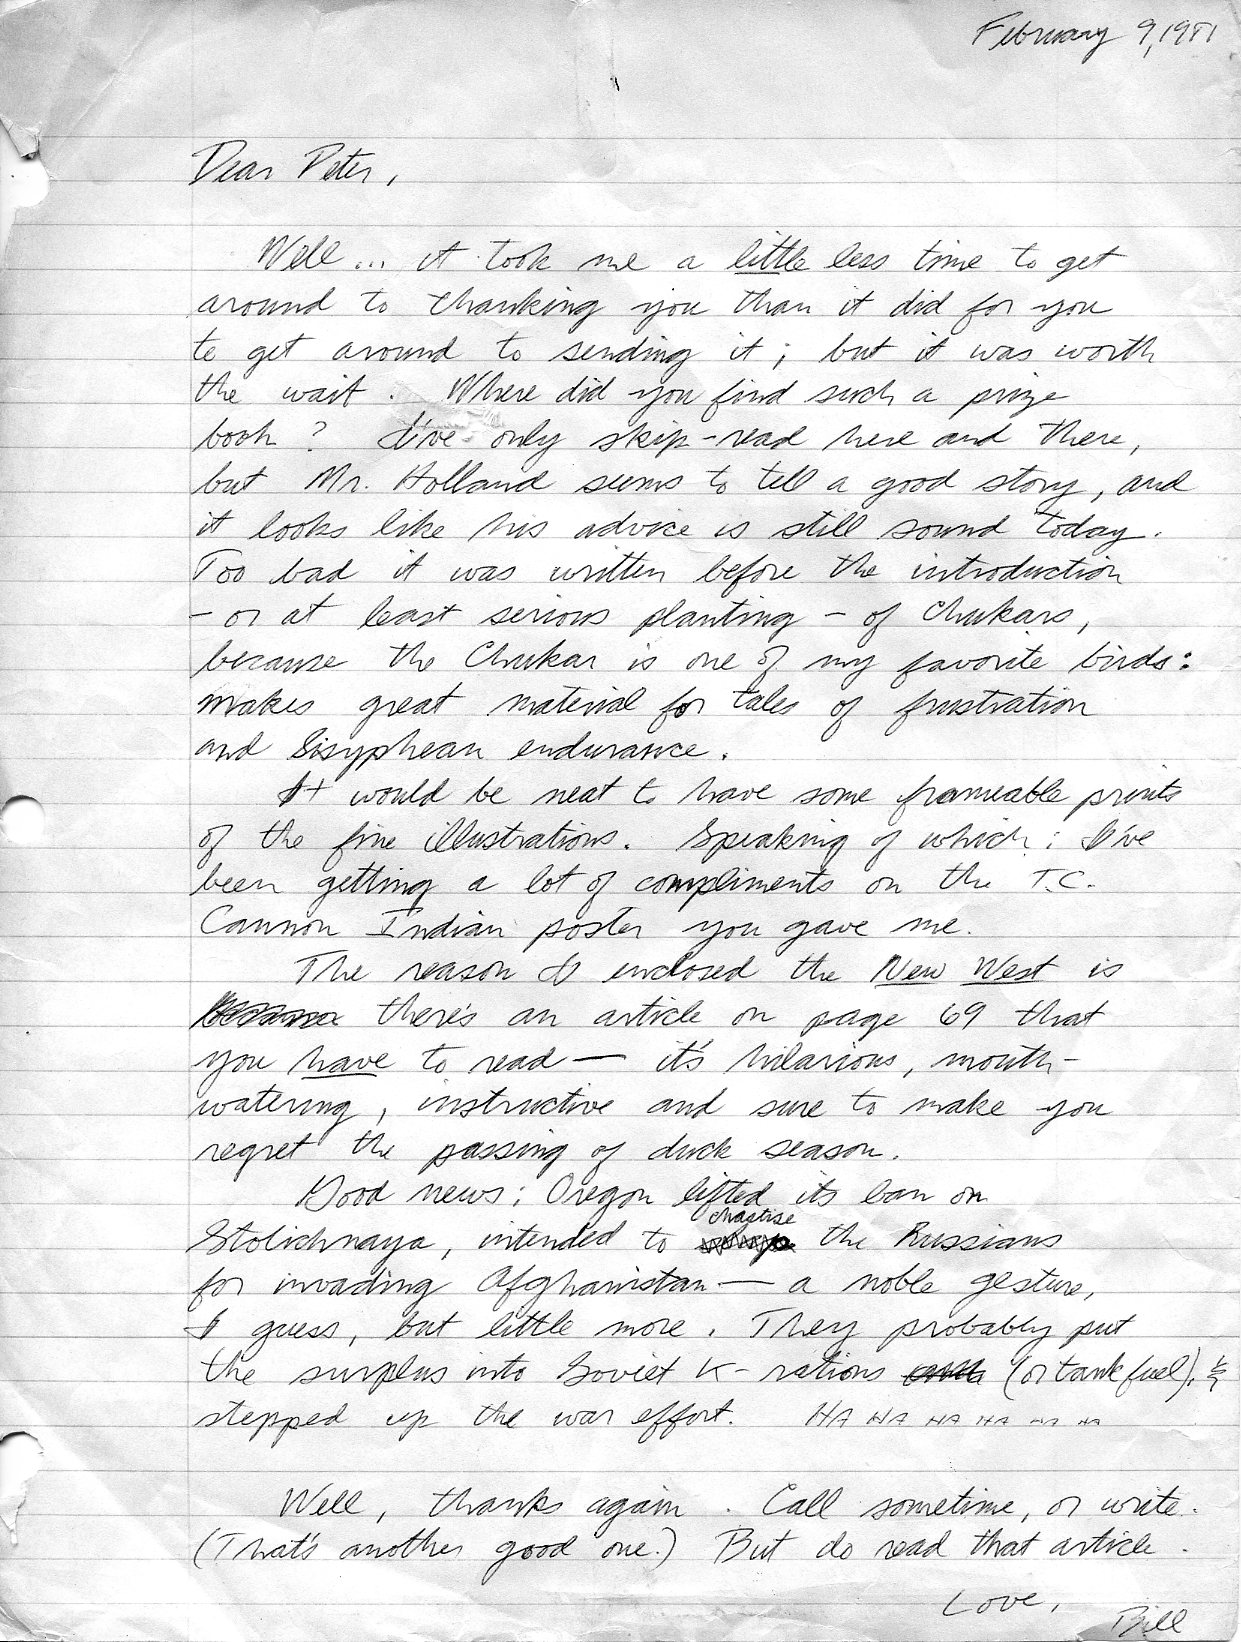 February 9, 1981
Dear Peter,
Well... it took me a little less time to get
around to thanking you than it did for you
to get around to sending it; but it was worth
the wait. Where did you find such a prize
book? I've only skip-read here and there,
but Mr. Holland seems to tell a good story, and
it looks like his advice is still sound today.
Too bad it was written before the introduction
- or at least serious planting - of Chukars,
because the Chukar is one of my favorite birds:
makes great material for tales of frustration
and Sisyphean endurance.
It would be neat to have some frameable prints
of the fine illustrations. Speaking of which: I've
been getting a lot of compliments on the T.C.
Cannon Indian poster you gave me.
The reason I enclosed the New West is
there's an article on page 69 that
you have to read — it's hilarious, mouth-
watering, instructive and sure to make you
regret the passing of duck season.
Good news: Oregon lifted its ban on
Stolichnaya, intended to chastise the Russians
for invading Afghanistan — a noble gesture,
I guess, but little more. They probably put
the surplus into Soviet K-rations (or tank fuel), &
stepped up the war effort. HA HA HA HA HA HA
Well, thanks again. Call sometime, or write.
(That's another good one.) But do read that article.
Love,
Bill